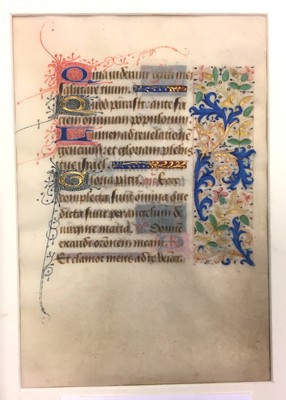 Quia viderunt oculi mei
salutare tuum.
Quod parasti: ante faci
em omnium populorum
Lumen ad revelatione
gentium: et gloriam plebis
tue israel.
Gloria patri.
completa sunt omnia que
dicta sunt per angelum de
virgine maria. Domine
exaudi oronem meam.
Et clamor meus ad te veniat.